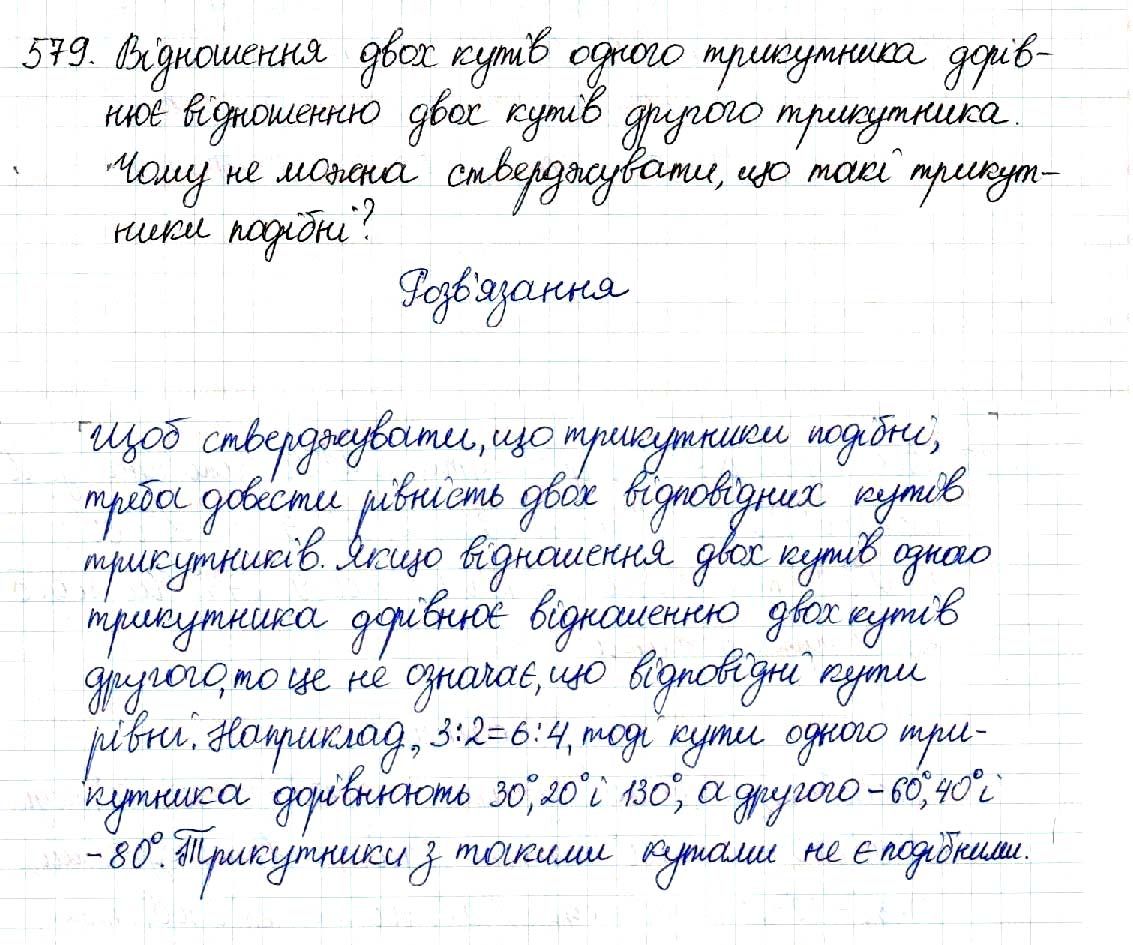 579. Відношення двох кутів одного трикутника дорів-
нює відношенню двох кутів другого трикутника.
Чому не можна стверджувати, що такі трикут-
ники подібні?
Розв'язання
Щоб стверджувати, що трикутники подібні,
треба довести рівність двох відповідних кутів
трикутників. Якщо відношення двох кутів одного
трикутника дорівнює відношенню двох кутів
другого, то це не означає, що відповідні кути
рівні. Наприклад, 3:2=6:4, тоді кути одного три-
кутника дорівнюють 30°, 20° і 130°, а другого – 60°, 40° і
– 80°. Трикутники з такими кутами не є подібними.